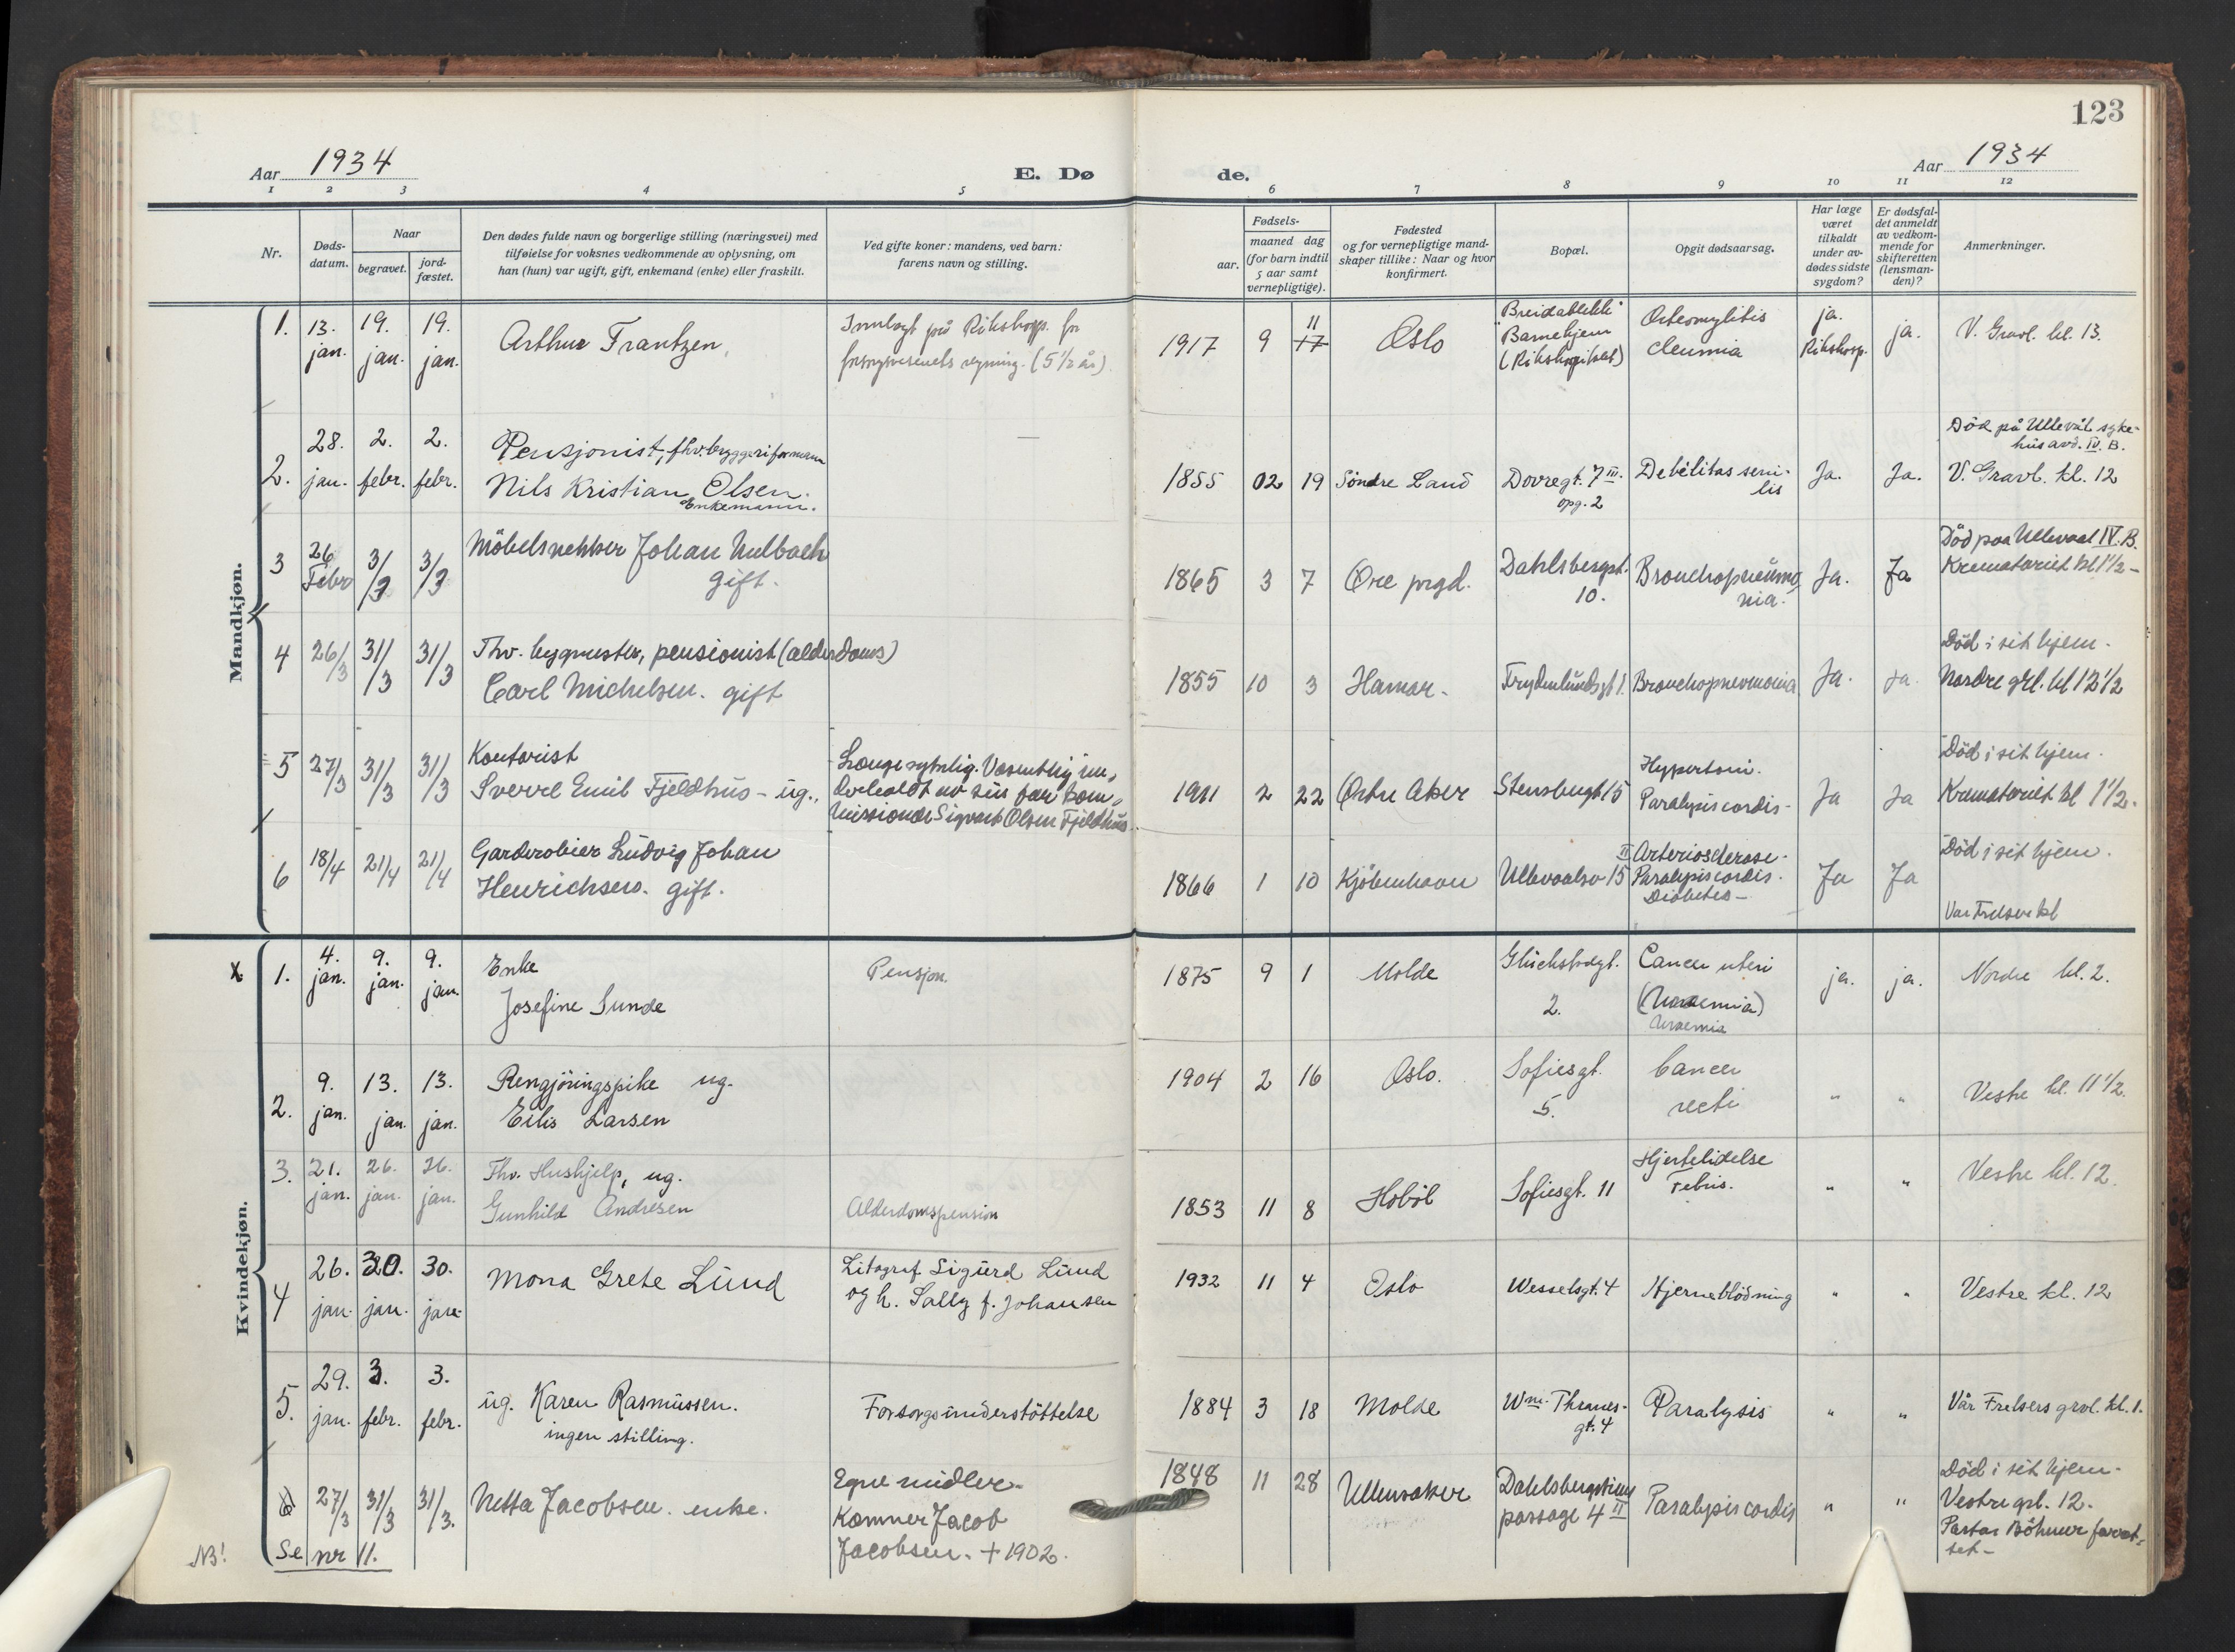 123
Aar 1934
E. Dø
de.
Aar 1934
1 2 3 4 5 6 7 8 9 10 11 12
Nr.
Døds-
datum.
Naar
begravet.
jord-
fæstet.
Den dødes fulde navn og borgerlige stilling (næringsvei) med
tilføielse for voksnes vedkommende av oplysning, om
han (hun) var ugift, gift, enkemand (enke) eller fraskilt.
Ved gifte koner: mandens, ved barn:
farens navn og stilling.
Fødsels-
aar.
maaned dag
(for barn indtil
5 aar samt
vernepligtige).
Fødested
og for vernepligtige mand-
skaper tillike: Naar og hvor
konfirmert.
Bopæl.
Opgit dødsaarsag.
Har læge
været
tilkaldt
under av-
dødes sidste
sygdom?
Er dødsfal-
det anmeldt
av vedkom-
mende for
skifteretten
(lensman-
den)?
Anmerkninger.
Mandkjøn.
1.
13.
jan.
19.
jan.
19.
jan.
Arthur Frantzen
Innlagt på Rikshosp. for
forsorgsvesenets regning. (5 1/2 år)
1917
9
11
17
Oslo
"Breidablikk"
Barnehjem
(Rikshospitalet)
Osteomylitis
ja.
Rikshosp.
ja.
V. Gravl. kl. 13.
2.
28.
jan.
2.
febr.
2.
febr.
Pensjonist, fhv. bryggeriformann
Nils Kristian Olsen.
Enkemann.
1855
02
19
Söndre Land
Dovregt. 7 III.
opg. 2
Debilitas seni-
lis
Ja.
Ja.
Död på Ullevål syke-
hus avd. IV. B.
V. Gravl. kl. 12
3
26
Febr
3/3
3/3
Möbelsnekker Johan Hulbach
gift.
1865
3
7
Öre prgd.
Dahlsbergst.
10.
Bronchopneumo
nia.
Ja.
Ja
Död paa Ullevaal IV. B.
Krematoriet kl 1 1/2 -
4
26/3
31/3
31/3
Fhv. bygmester, pensionist (alderdoms)
Carl Michelsen. gift
1855
10
3
Hamar -
Frydenlundsgt 1.
Bronchopnevmonia
Ja.
Ja.
Död i sit hjem -
Nordre grl. kl 12 1/2
5
27/3
31/3
31/3
Kontorist
Sverre Emil Fjeldhus - ug.,
Længe sykelig. Væsentlig un-
derholdt av sin far kom-
missionær Sigvart Olsen Fjeldhus
1911
2
22
Östre Aker
Stensbergt 15
Hypertoni.
Paralysis cordis -
Ja
Ja
Död i sit hjem -
Krematoriet kl 1 1/2 -
6
18/4
21/4
21/4
Garderobier Ludvig Johan
Henrichsen. gift.
1866
1
10
Kjöbenhavn
Ullevaalsv 15 II
Arteriosclerose -
Paralysis cordis -
Diabetes -
Ja
Ja
Död i sit hjem.
Var Frelsers kl
Kvindekjøn.
X
1.
4.
jan.
9.
jan.
9.
jan.
Enke
Josefine Sunde
Pensjon.
1875
9
1
Molde
Glückstadgt.
2.
Cancer uteri
(Uraemia)
Uraemia
ja.
ja.
Nordre kl. 2.
2.
9.
jan.
13.
jan.
13.
jan.
Rengjöringspike ug.
Eilis Larsen
1904
2
16
Oslo.
Sofiesgt.
5.
Cancer
recti
"
"
Vestre kl. 11 1/2.
3.
21.
jan.
26.
jan.
26.
jan.
Fhv. Hushjelp, ug.
Gunhild Andresen
Alderdomspension
1853
11
8
Hobøl
Sofiesgt. 11
Hjertelidelse
Febris.
"
"
Vestre kl. 12.
4
26.
jan.
30.
jan.
30.
jan.
Mona Grete Lund
Litograf Sigurd Lund
og h. Sally f. Johansen
1932
11
4
Oslo
Wesselsgt. 4
Hjerneblödning
"
"
Vestre kl. 12
5.
29.
jan.
3.
febr.
3.
febr.
ug. Karen Rasmussen.
ingen stilling.
Forsorgsunderstöttelse
1884
3
18
Molde
Wm. Thranes-
gt. 4
Paralysis
"
"
Vår Frelsers grvl. kl. 1.
6
27/3
31/3
31/3.
Netta Jacobsen. enke.
Egne midler -
Kæmner Jacob
Jacobsen. + 1902.
1848
11
28
Ullensaker
Dahlsbergstiens
passage 4 II
Paralysis cordis
"
"
Död i sit hjem -
Vestre grl. 12 -
Pastor Böhmer forret-
tet -
NB!
Se nr 11.